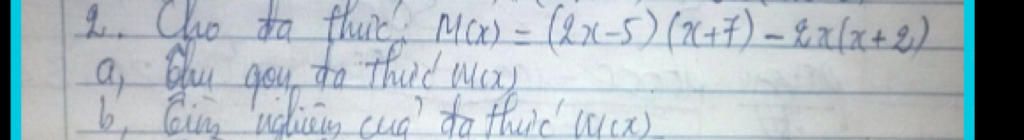 2. Cho đa thức: M(x) = (2x-5)(x+7) - 2x(x+2)
a, Thu gọn đa thức M(x)
b, Tìm nghiệm của đa thức M(x)